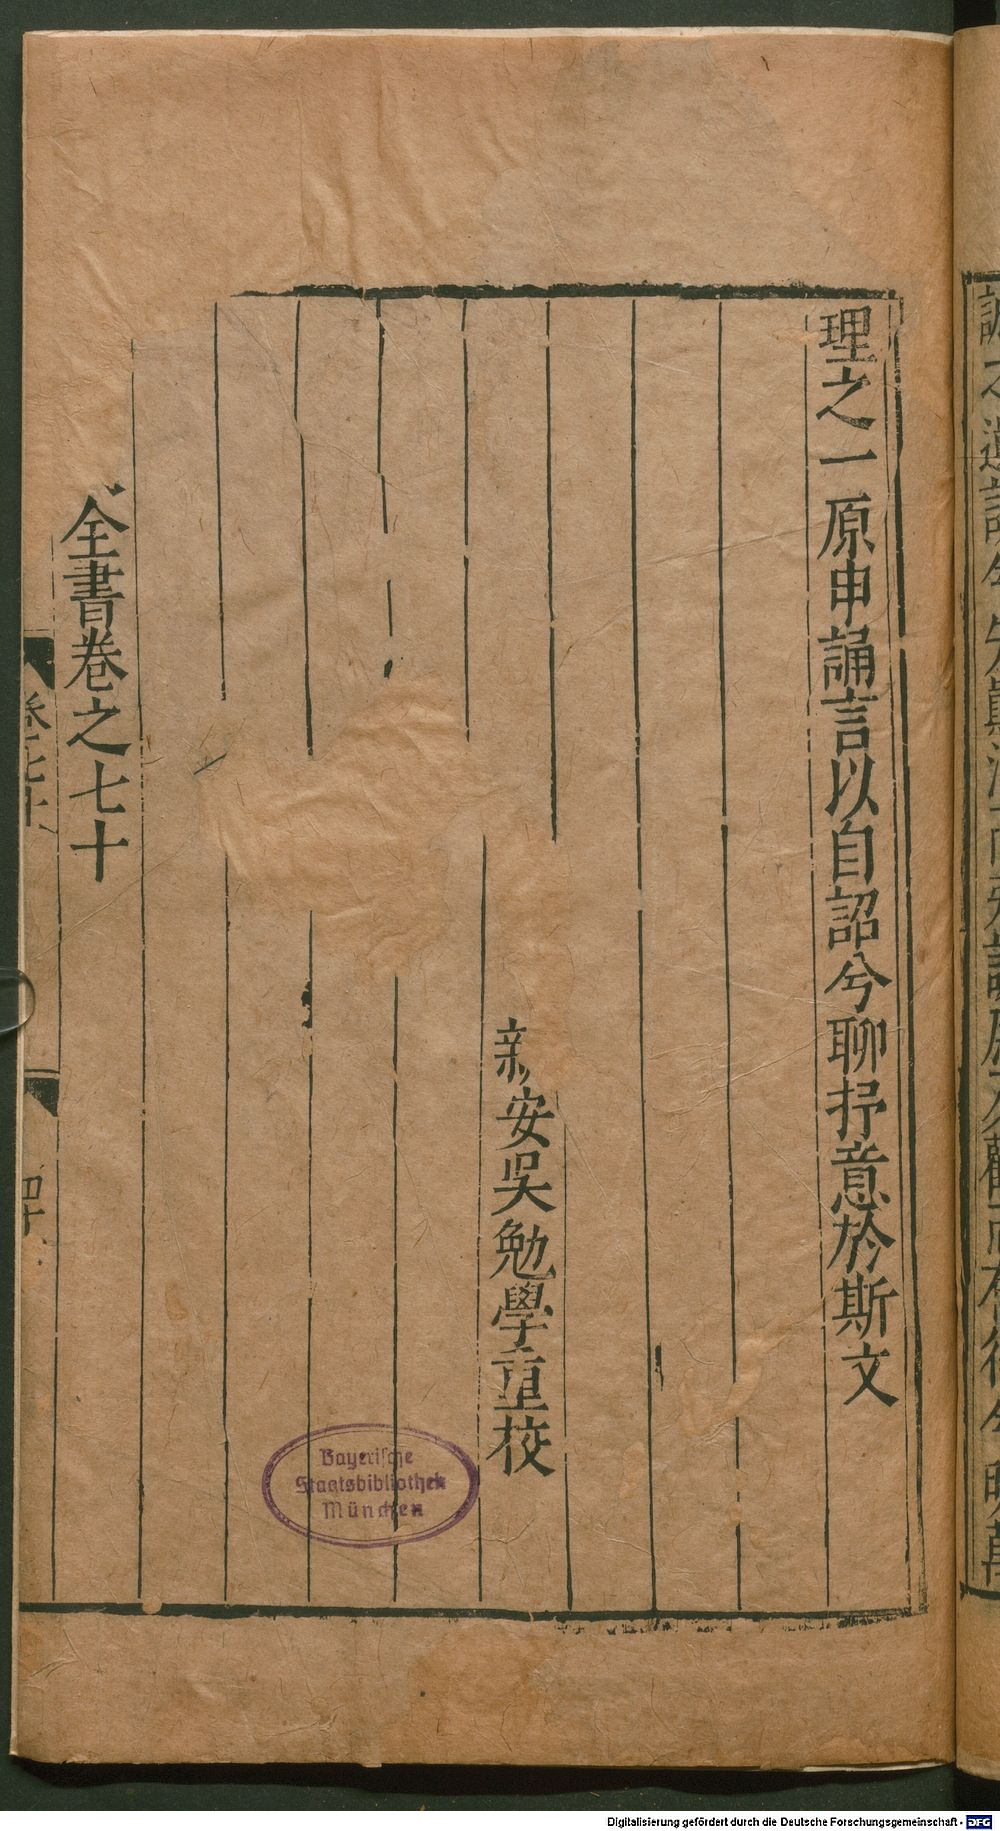 理之一原申誦言以自詔兮聊抒意於斯文
新安吳勉學重校
全書卷之七十
卷七十
四十
Bayerische
Staatsbibliothek
München
Digitalisierung gefördert durch die Deutsche Forschungsgemeinschaft - DFG